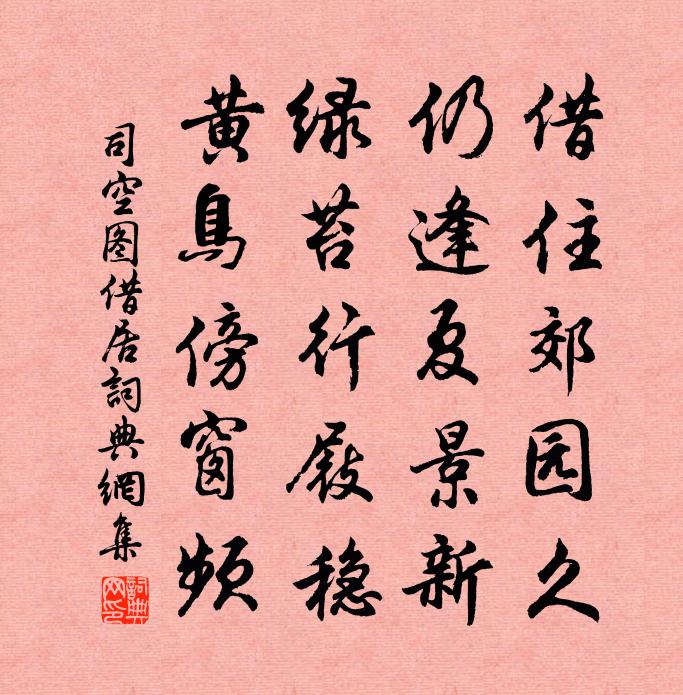 借住郊园久
仍逢夏景新
绿苔行屐稳
黄鸟傍窗频
司空图借居詞典網集
詞典网印